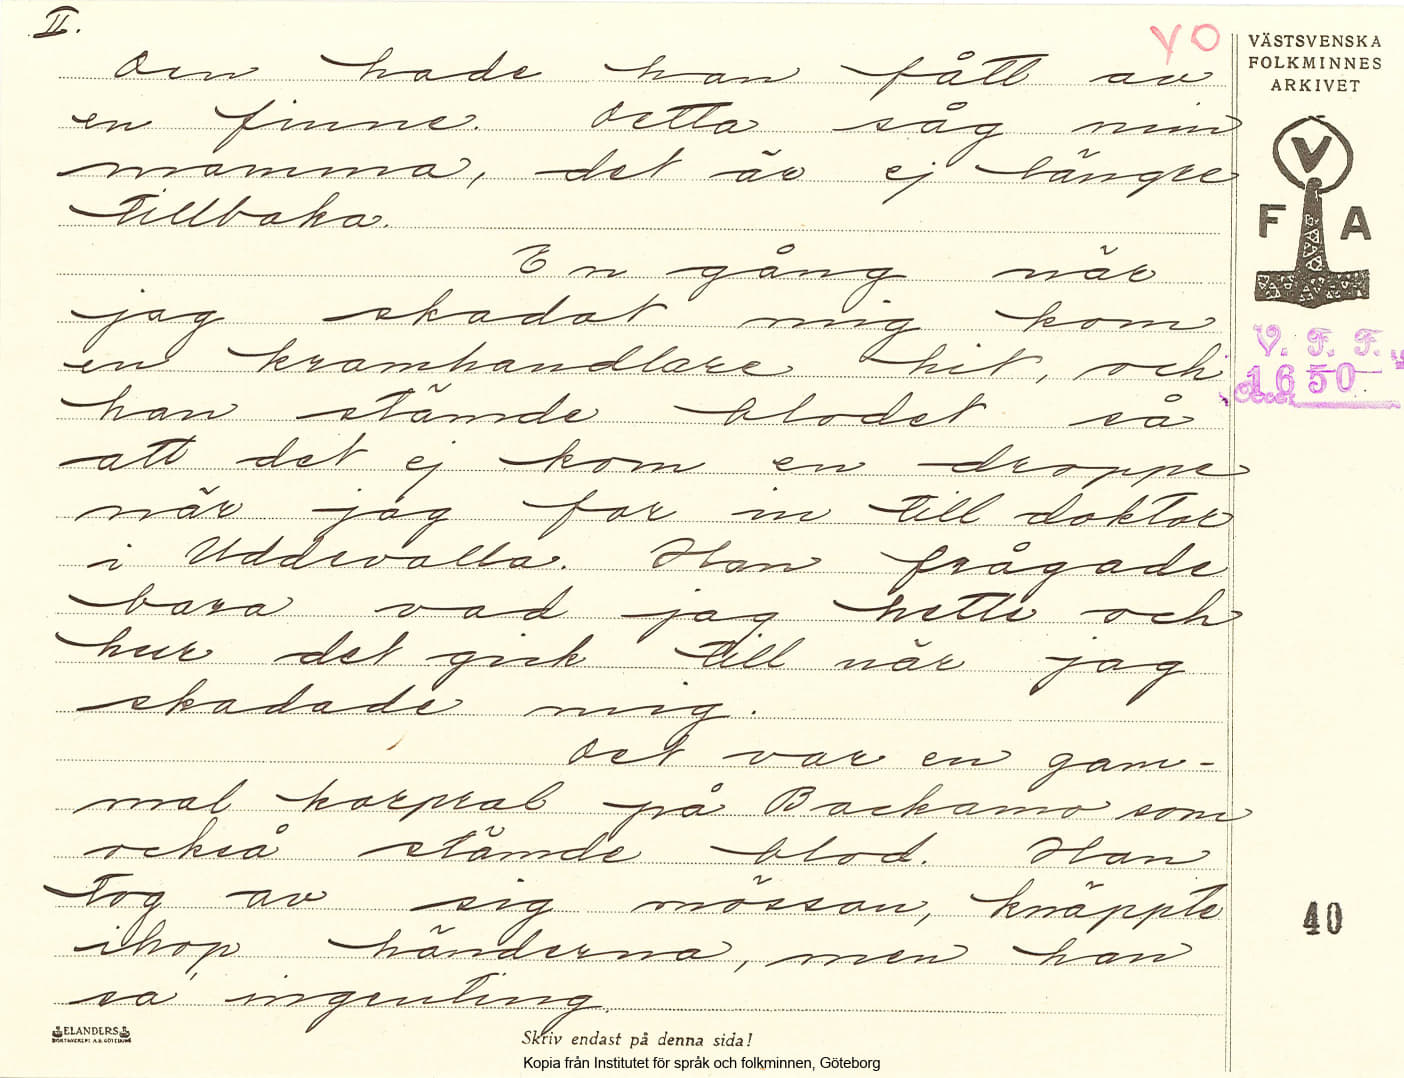 II.
YO
Den hade han fått av
en finne. Detta såg min
mamma, det är ej längre
tillbaka.
En gång när
jag skadat mig kom
en kramhandlare hit, och
han stämde blodet så
att det ej kom en droppe
när jag for in till doktor
i Uddevalla. Han frågade
bara vad jag hette och
hur det gick till när jag
skadade mig.
Det var en gam-
mal korpral på Backamo som
också stämde blod. Han
tog av sig mössan, knäppte
ihop händerna, men han
sa ingenting.
VÄSTSVENSKA
FOLKMINNES
ARKIVET
V
F A
V. F. F.
1650
40
ELANDERS
Skriv endast på denna sida!
Kopia från Institutet för språk och folkminnen, Göteborg